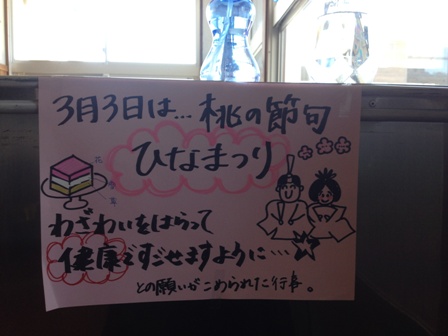 3月3日は…桃の節句
ひなまつり
わざわいをはらって
健康ですごせますように…
との願いがこめられた行事。